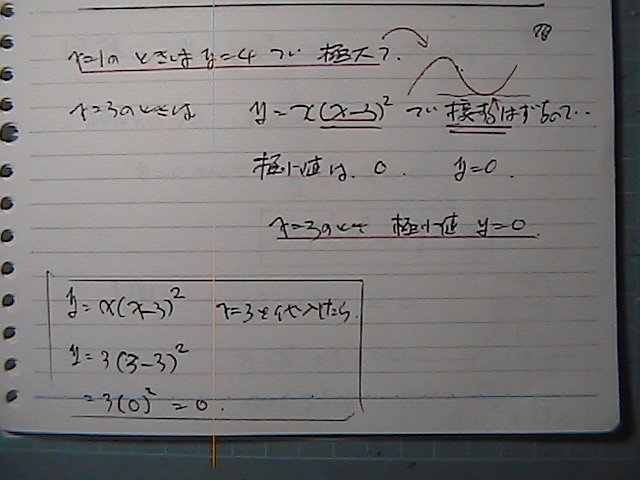 x=1のときは y=4 で 極大で.
x=3のときは y=x(x-3)² で 接線はずなので..
極小値は. 0. y=0.
x=3のとき 極小値 y=0.
y=x(x-3)² x=3を代入したら.
y=3(3-3)²
=3(0)²=0.